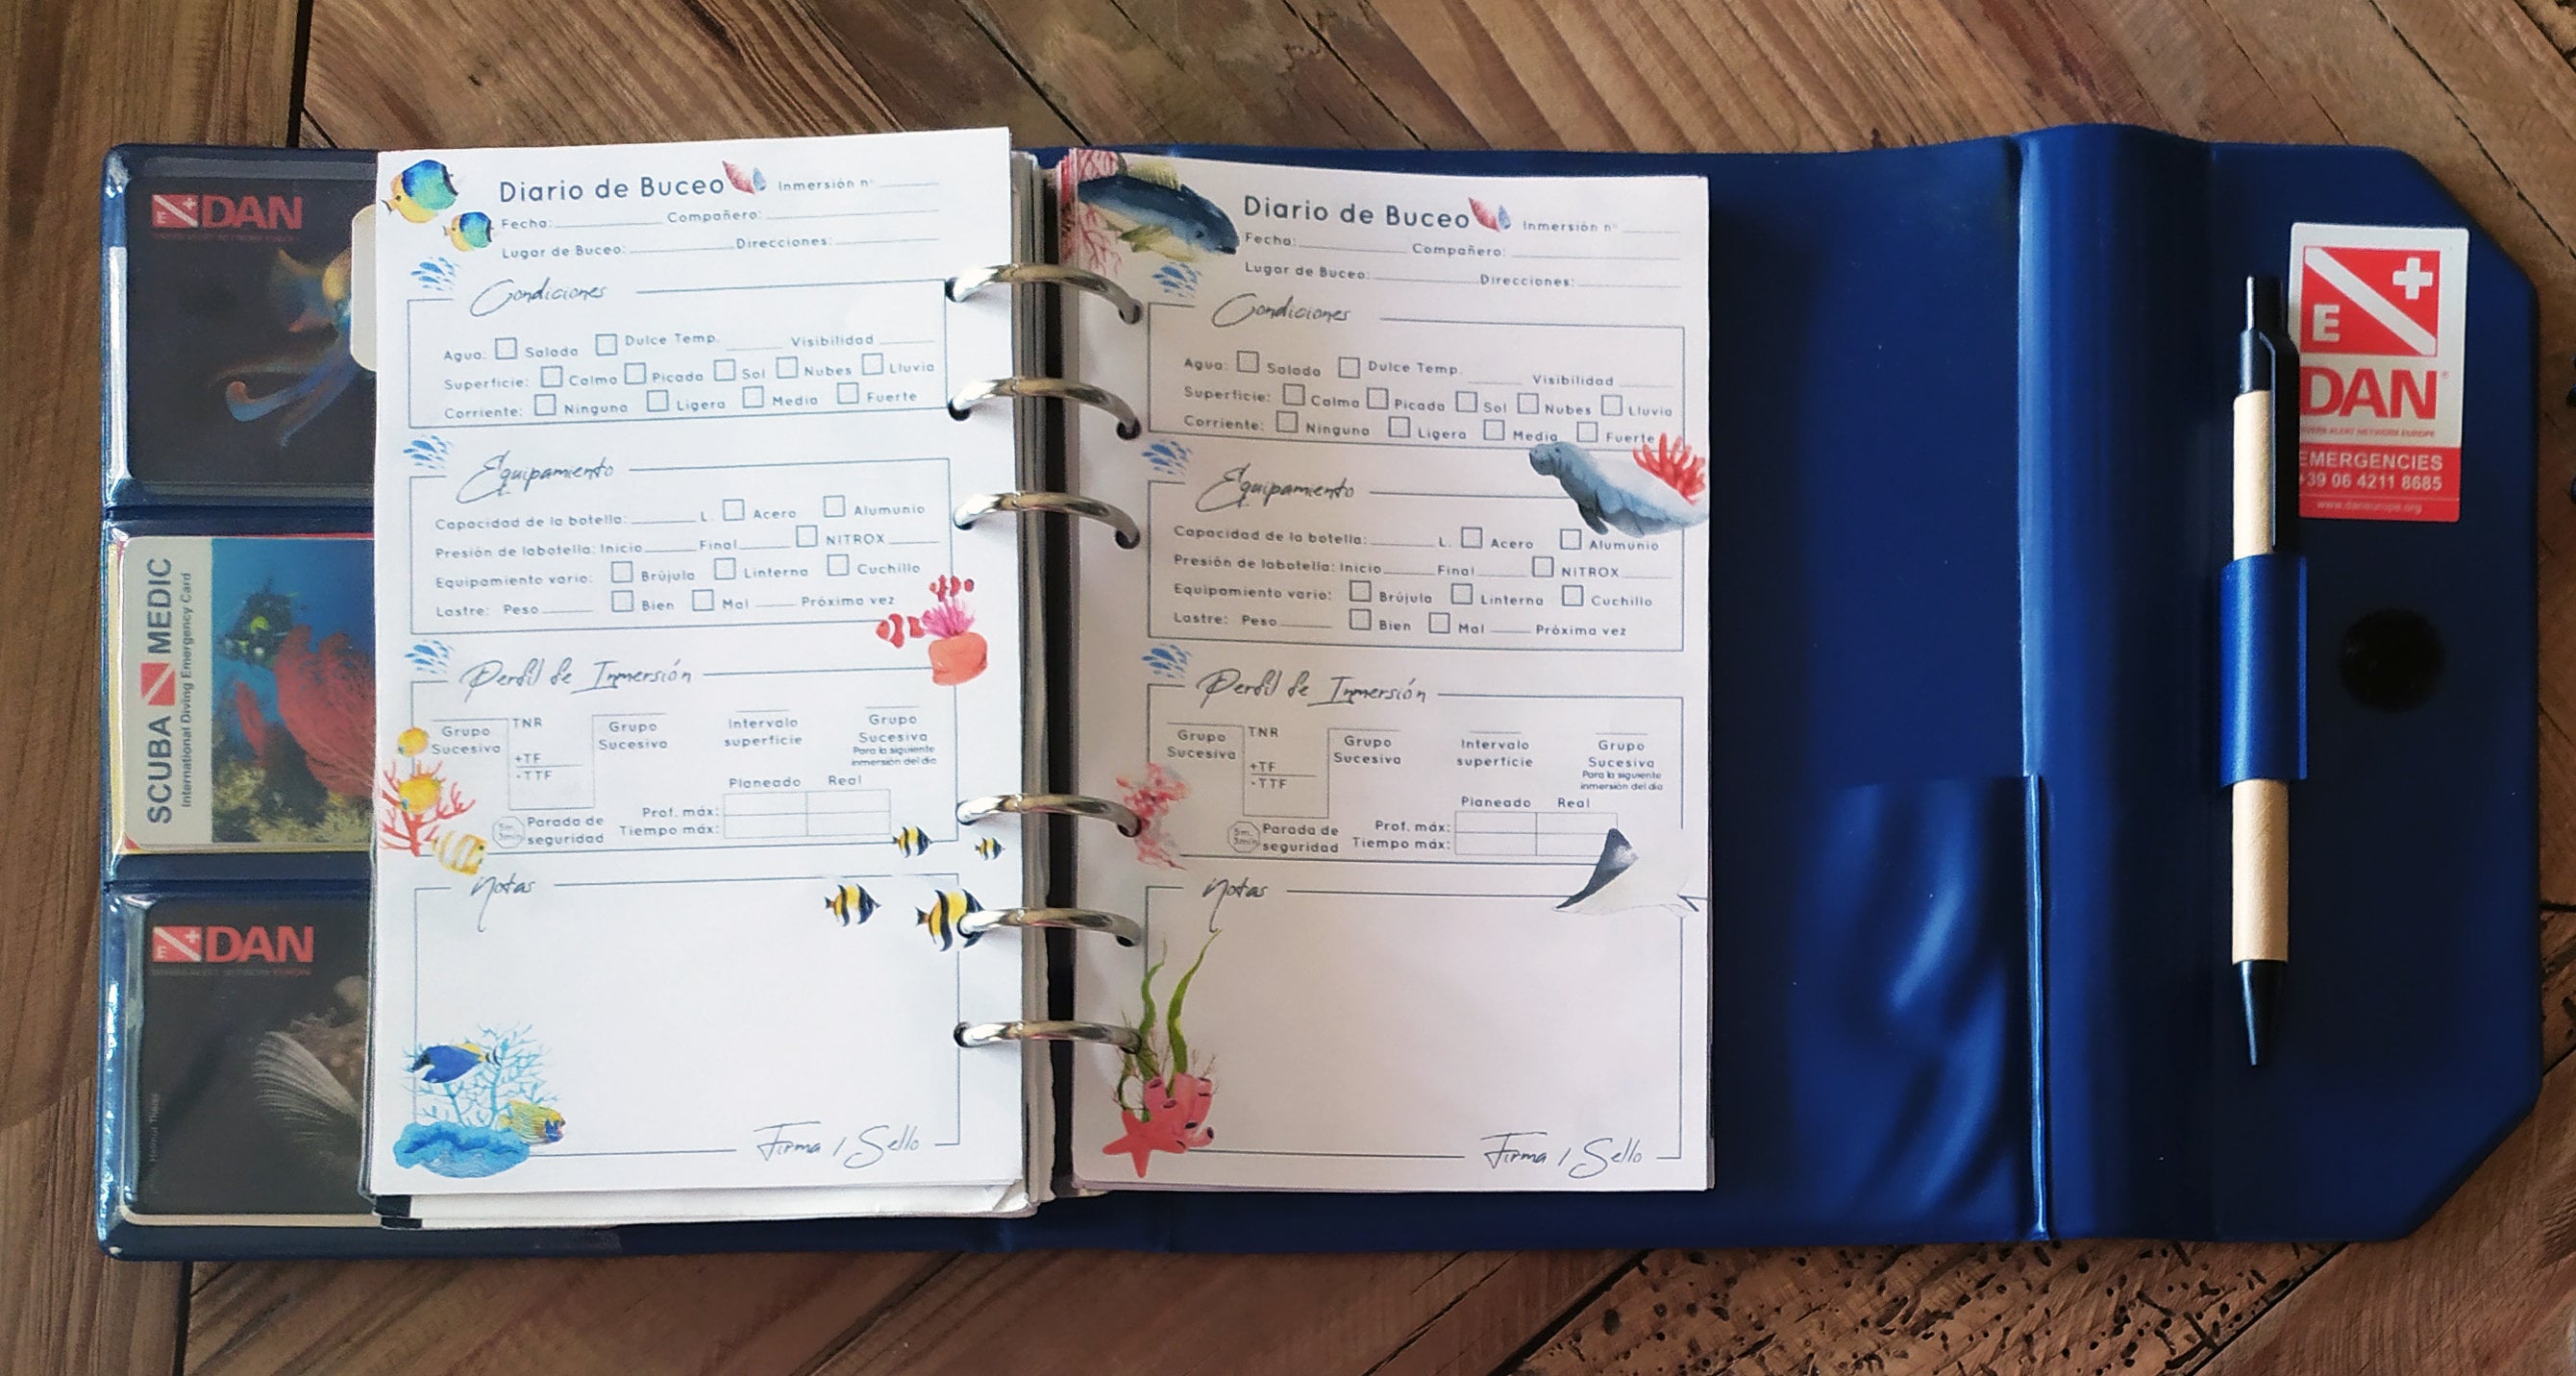 DAN
SCUBA MEDIC
International Diving Emergency Card
DAN
Diario de Buceo Inmersión nº
Fecha: Compañero:
Lugar de Buceo: Direcciones:
Condiciones
Agua: Salada Dulce Temp. Visibilidad
Superficie: Calma Picada Sol Nubes Lluvia
Corriente: Ninguna Ligera Media Fuerte
Equipamiento
Capacidad de la botella: L. Acero Alumunio
Presión de labotella: Inicio Final NITROX
Equipamiento vario: Brújula Linterna Cuchillo
Lastre: Peso Bien Mal Próxima vez
Perfil de Inmersión
Grupo Sucesiva
TNR
+TF
-TTF
Grupo Sucesiva
Intervalo superficie
Grupo Sucesiva
Para la siguiente
inmersión del día
Planeado Real
5m. 3min
Parada de seguridad
Prof. máx:
Tiempo máx:
Notas
Firma / Sello
Diario de Buceo Inmersión nº
Fecha: Compañero:
Lugar de Buceo: Direcciones:
Condiciones
Agua: Salada Dulce Temp. Visibilidad
Superficie: Calma Picada Sol Nubes Lluvia
Corriente: Ninguna Ligera Media Fuerte
Equipamiento
Capacidad de la botella: L. Acero Alumunio
Presión de labotella: Inicio Final NITROX
Equipamiento vario: Brújula Linterna Cuchillo
Lastre: Peso Bien Mal Próxima vez
Perfil de Inmersión
Grupo Sucesiva
TNR
+TF
-TTF
Grupo Sucesiva
Intervalo superficie
Grupo Sucesiva
Para la siguiente
inmersión del día
Planeado Real
5m. 3min
Parada de seguridad
Prof. máx:
Tiempo máx:
Notas
Firma / Sello
E
DAN
ALERT NETWORK EUROPE
EMERGENCIES
+39 06 4211 8685
www.daneurope.org